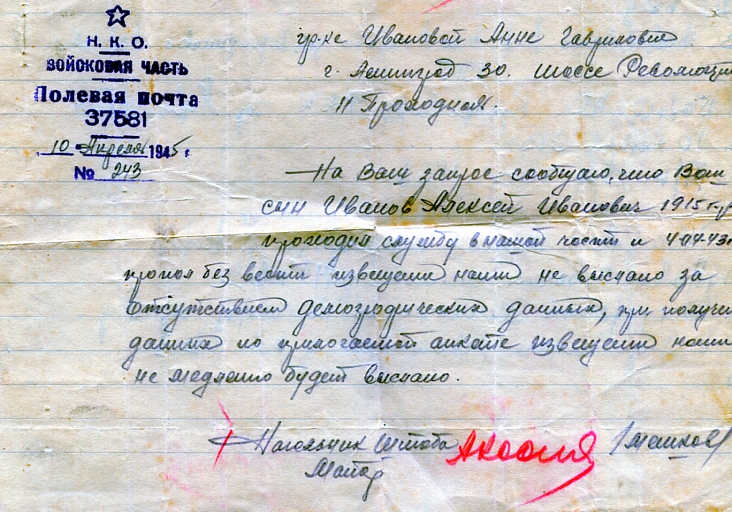 Н. К. О.
ВОЙСКОВАЯ ЧАСТЬ
Полевая почта
37581
10 Апреля 1945 г.
№ 243
гр-ке Ивановой Анне Гавриловне
г. Ленинград 30. шоссе Революции
11 Проходная.
На Ваш запрос сообщаю, что Ваш
сын Иванов Алексей Иванович 1915 г.р.
проходил службу в нашей части и 4-04-43г
пропал без вести извещение нами не выслано за
отсутствием демографических данных, при получен
данных по прилагаемой анкете извещение нами
не медленно будет выслано.
Начальник штаба
Майор